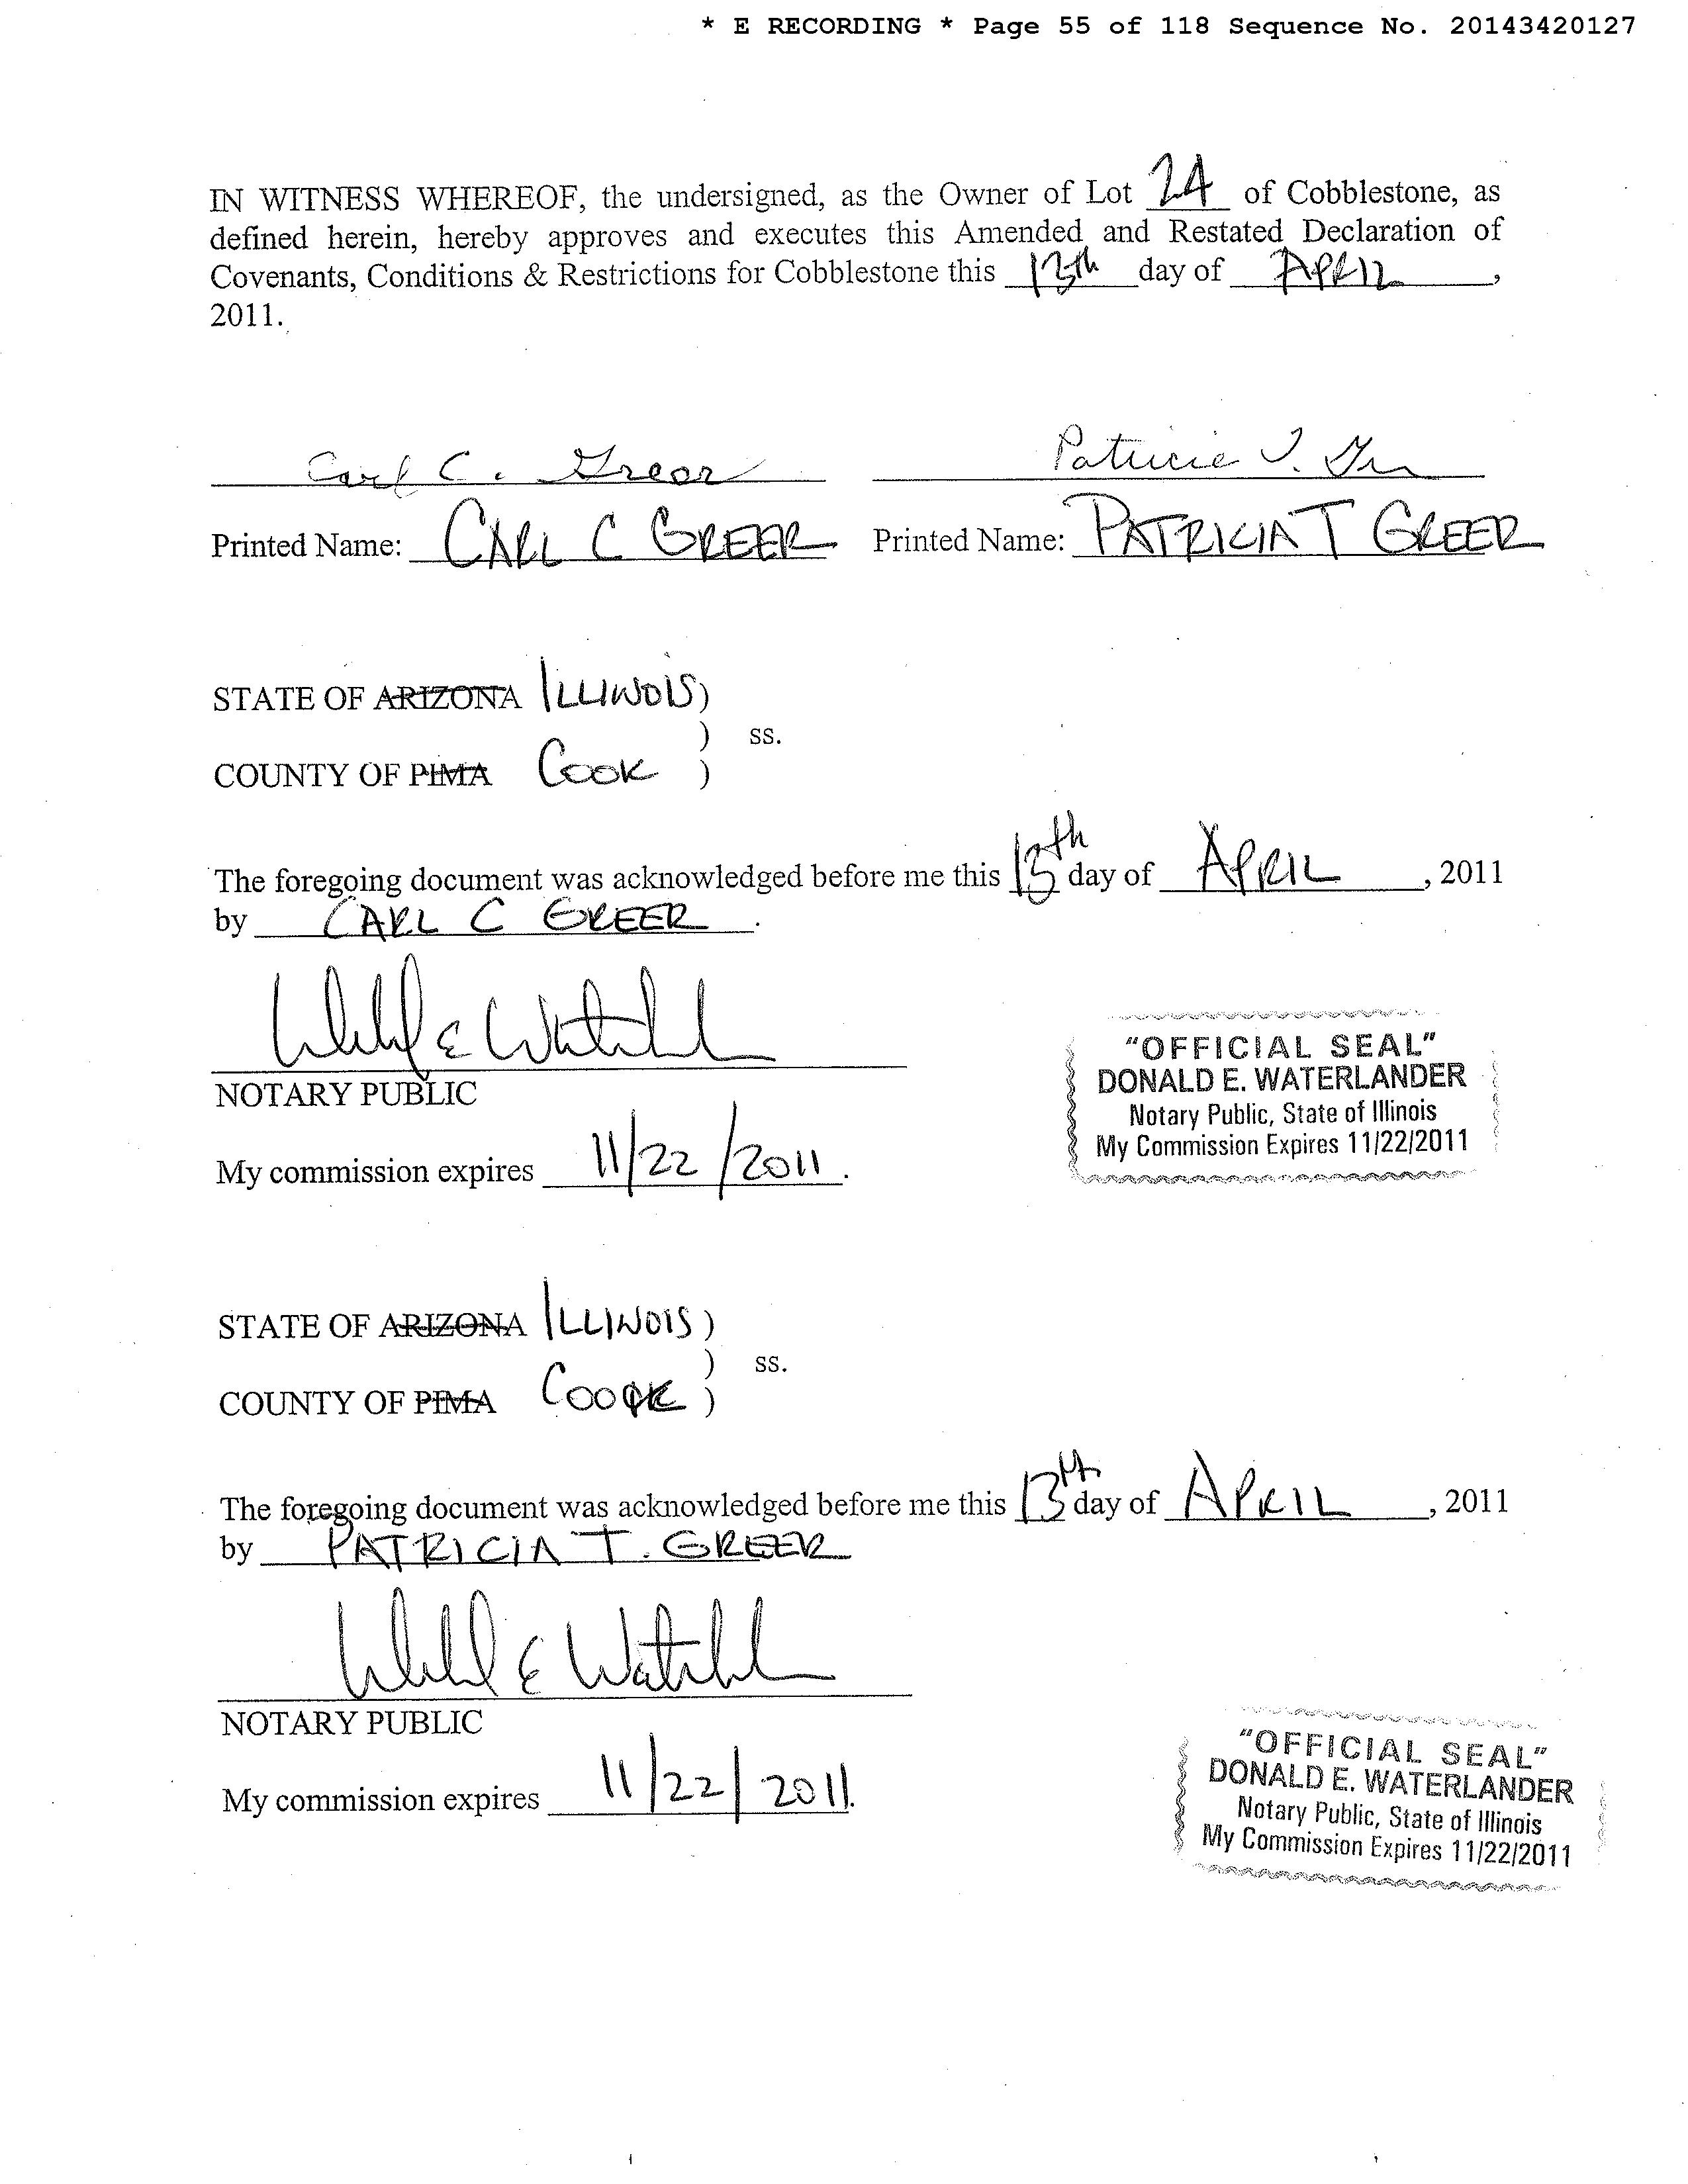 * E RECORDING * Page 55 of 118 Sequence No. 20143420127
IN WITNESS WHEREOF, the undersigned, as the Owner of Lot 24 of Cobblestone, as
defined herein, hereby approves and executes this Amended and Restated Declaration of
Covenants, Conditions & Restrictions for Cobblestone this 13th day of APRIL,
2011.
Carl C. Greer Patricia T. Greer
Printed Name: CARL C GREER Printed Name: PATRICIA T GREER
STATE OF ARIZONA ILLINOIS)
) ss.
COUNTY OF PIMA COOK )
The foregoing document was acknowledged before me this 13th day of APRIL, 2011
by CARL C GREER.
"OFFICIAL SEAL"
DONALD E. WATERLANDER
Notary Public, State of Illinois
My Commission Expires 11/22/2011
NOTARY PUBLIC
My commission expires 11/22/2011.
STATE OF ARIZONA ILLINOIS)
) ss.
COUNTY OF PIMA COOK )
The foregoing document was acknowledged before me this 13th day of APRIL, 2011
by PATRICIA T. GREER
NOTARY PUBLIC
My commission expires 11/22/2011.
"OFFICIAL SEAL"
DONALD E. WATERLANDER
Notary Public, State of Illinois
My Commission Expires 11/22/2011